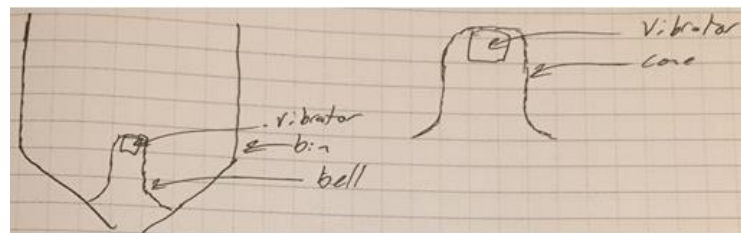 vibrator
bin
bell
Vibrator
cone